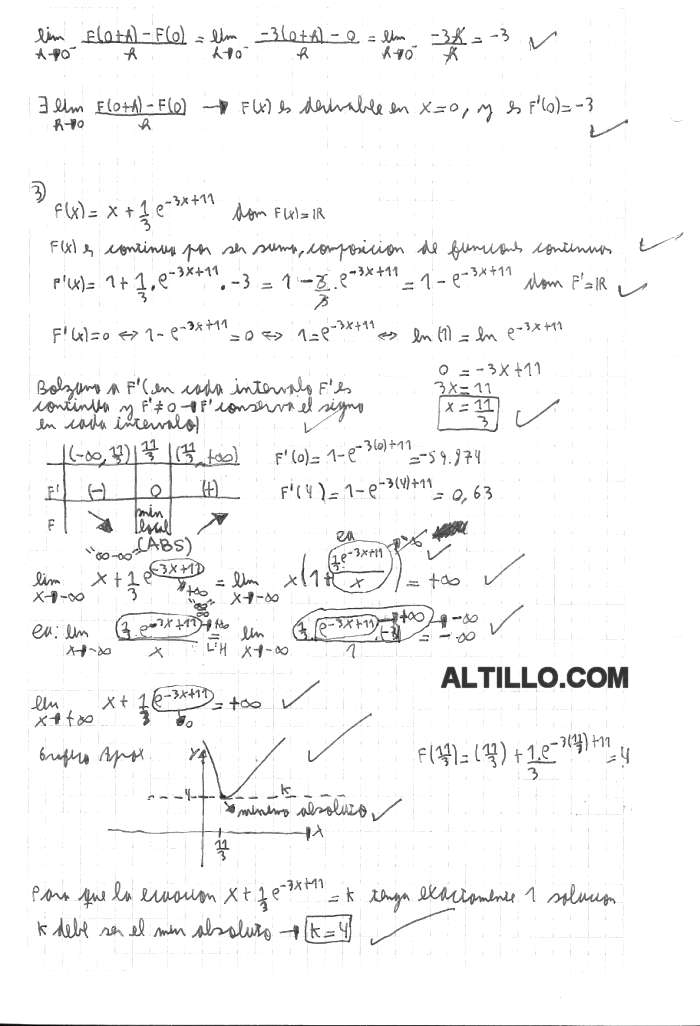 lim h→0⁻ F(0+h) - F(0) / h = lim h→0⁻ -3(0+h) - 0 / h = lim h→0⁻ -3h / h = -3
∃ lim h→0 F(0+h) - F(0) / h → F(x) es derivable en x=0, y es F'(0)=-3
3) F(x) = x + 1/3 e^(-3x+11) dom F(x)=IR
F(x) es continua por ser suma, composicion de funciones continuas
F'(x) = 1 + 1/3 . e^(-3x+11) . -3 = 1 - 3/3 . e^(-3x+11) = 1 - e^(-3x+11) dom F'=IR
F'(x)=0 ⇔ 1 - e^(-3x+11) = 0 ⇔ 1 = e^(-3x+11) ⇔ ln(1) = ln e^(-3x+11)
0 = -3x+11
Bolzano a F' (en cada intervalo F' es 3x = 11
continua y F'≠0 → F' conserva el signo x = 11/3
en cada intervalo)
(-∞, 11/3) 11/3 (11/3, +∞) F'(0) = 1 - e^(-3(0)+11) = -59.874
F' (-) 0 (+) F'(4) = 1 - e^(-3(4)+11) = 0,63
F ↘ min local ↗
(ABS)
"∞-∞" ea
lim x→-∞ x + 1/3 e^(-3x+11) →+∞ = lim x→-∞ x(1 + 1/3 e^(-3x+11) / x) = +∞
ea: lim x→-∞ 1/3 . e^(-3x+11) →+∞ / x = L'H lim x→-∞ 1/3 . e^(-3x+11) . -3 / 1 = -∞
ALTILLO.COM
lim x→+∞ x + 1/3 e^(-3x+11) →0 = +∞
Grafico Aprox y F(11/3) = (11/3) + 1/3 . e^(-3(11/3)+11) = 4
4 k
minimo absoluto
x
11/3
Para que la ecuacion x + 1/3 e^(-3x+11) = k tenga exactamente 1 solucion
k debe ser el min absoluto → k=4